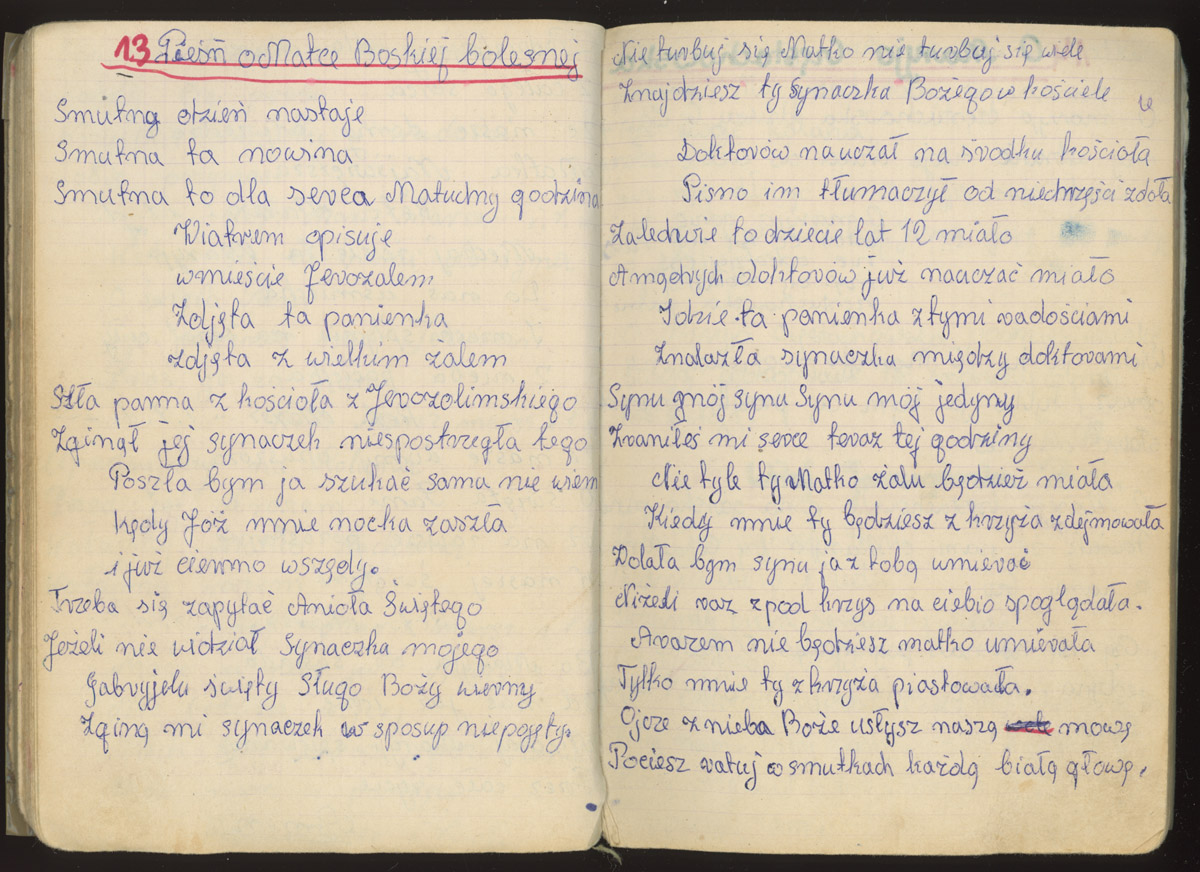 13 Pieśń o Matce Boskiej bolesnej
Smutny dzień nastaje
Smutna ta nowina
Smutna to dla serca Matuchny godzina
Wiatrem opisuje
w mieście Jerozalem
Zdjęta ta panienka
zdjęta z wielkim żalem
Szła panna z kościoła z Jerozolimskiego
Zginął jej synaczek niespostrzegła tego
Poszła bym ja szukać sama nie wiem
kędy Jóż mnie nocka zaszła
i już ciemno wszędy.
Trzeba się zapytać Anioła Świętego
Jeżeli nie widział Synaczka mojego
Gabryjelu święty Sługo Boży wierny
Zginą mi synaczek w sposup niepojęty.
Nie turbuj się Matko nie turbuj się wele
Znajdziesz ty Synaczka Bożego w kościele
Doktorów nauczał na środku kościoła
Pismo im tłumaczył od niechczęści zdoła
Zaledwie to dziecie lat 12 miało
A mądrych doktorów już nauczać miało
Idzie ta panienka z tymi radościami
Znalazła synaczka między doktorami
Synu mój synu Synu mój jedyny
Zraniłeś mi serce teraz tej godziny
Nie tyle ty Matko żalu będzież miała
Kiedy mnie ty będziesz z krzyża zdejmowała
Dolała bym synu ja z tobą umierać
Niżeli raz z pod krzys na ciebio spoglądała.
A razem nie będziesz matko umierała
Tylko mnie ty z krzyża piastowała.
Ojcze z nieba Boże usłysz naszą mowę
Pociesz ratuj w smutkach każdą białą głowę.